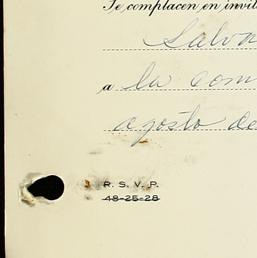 Se complacen en invit
Salva
a la com
agosto de
R. S. V. P.
48-25-28